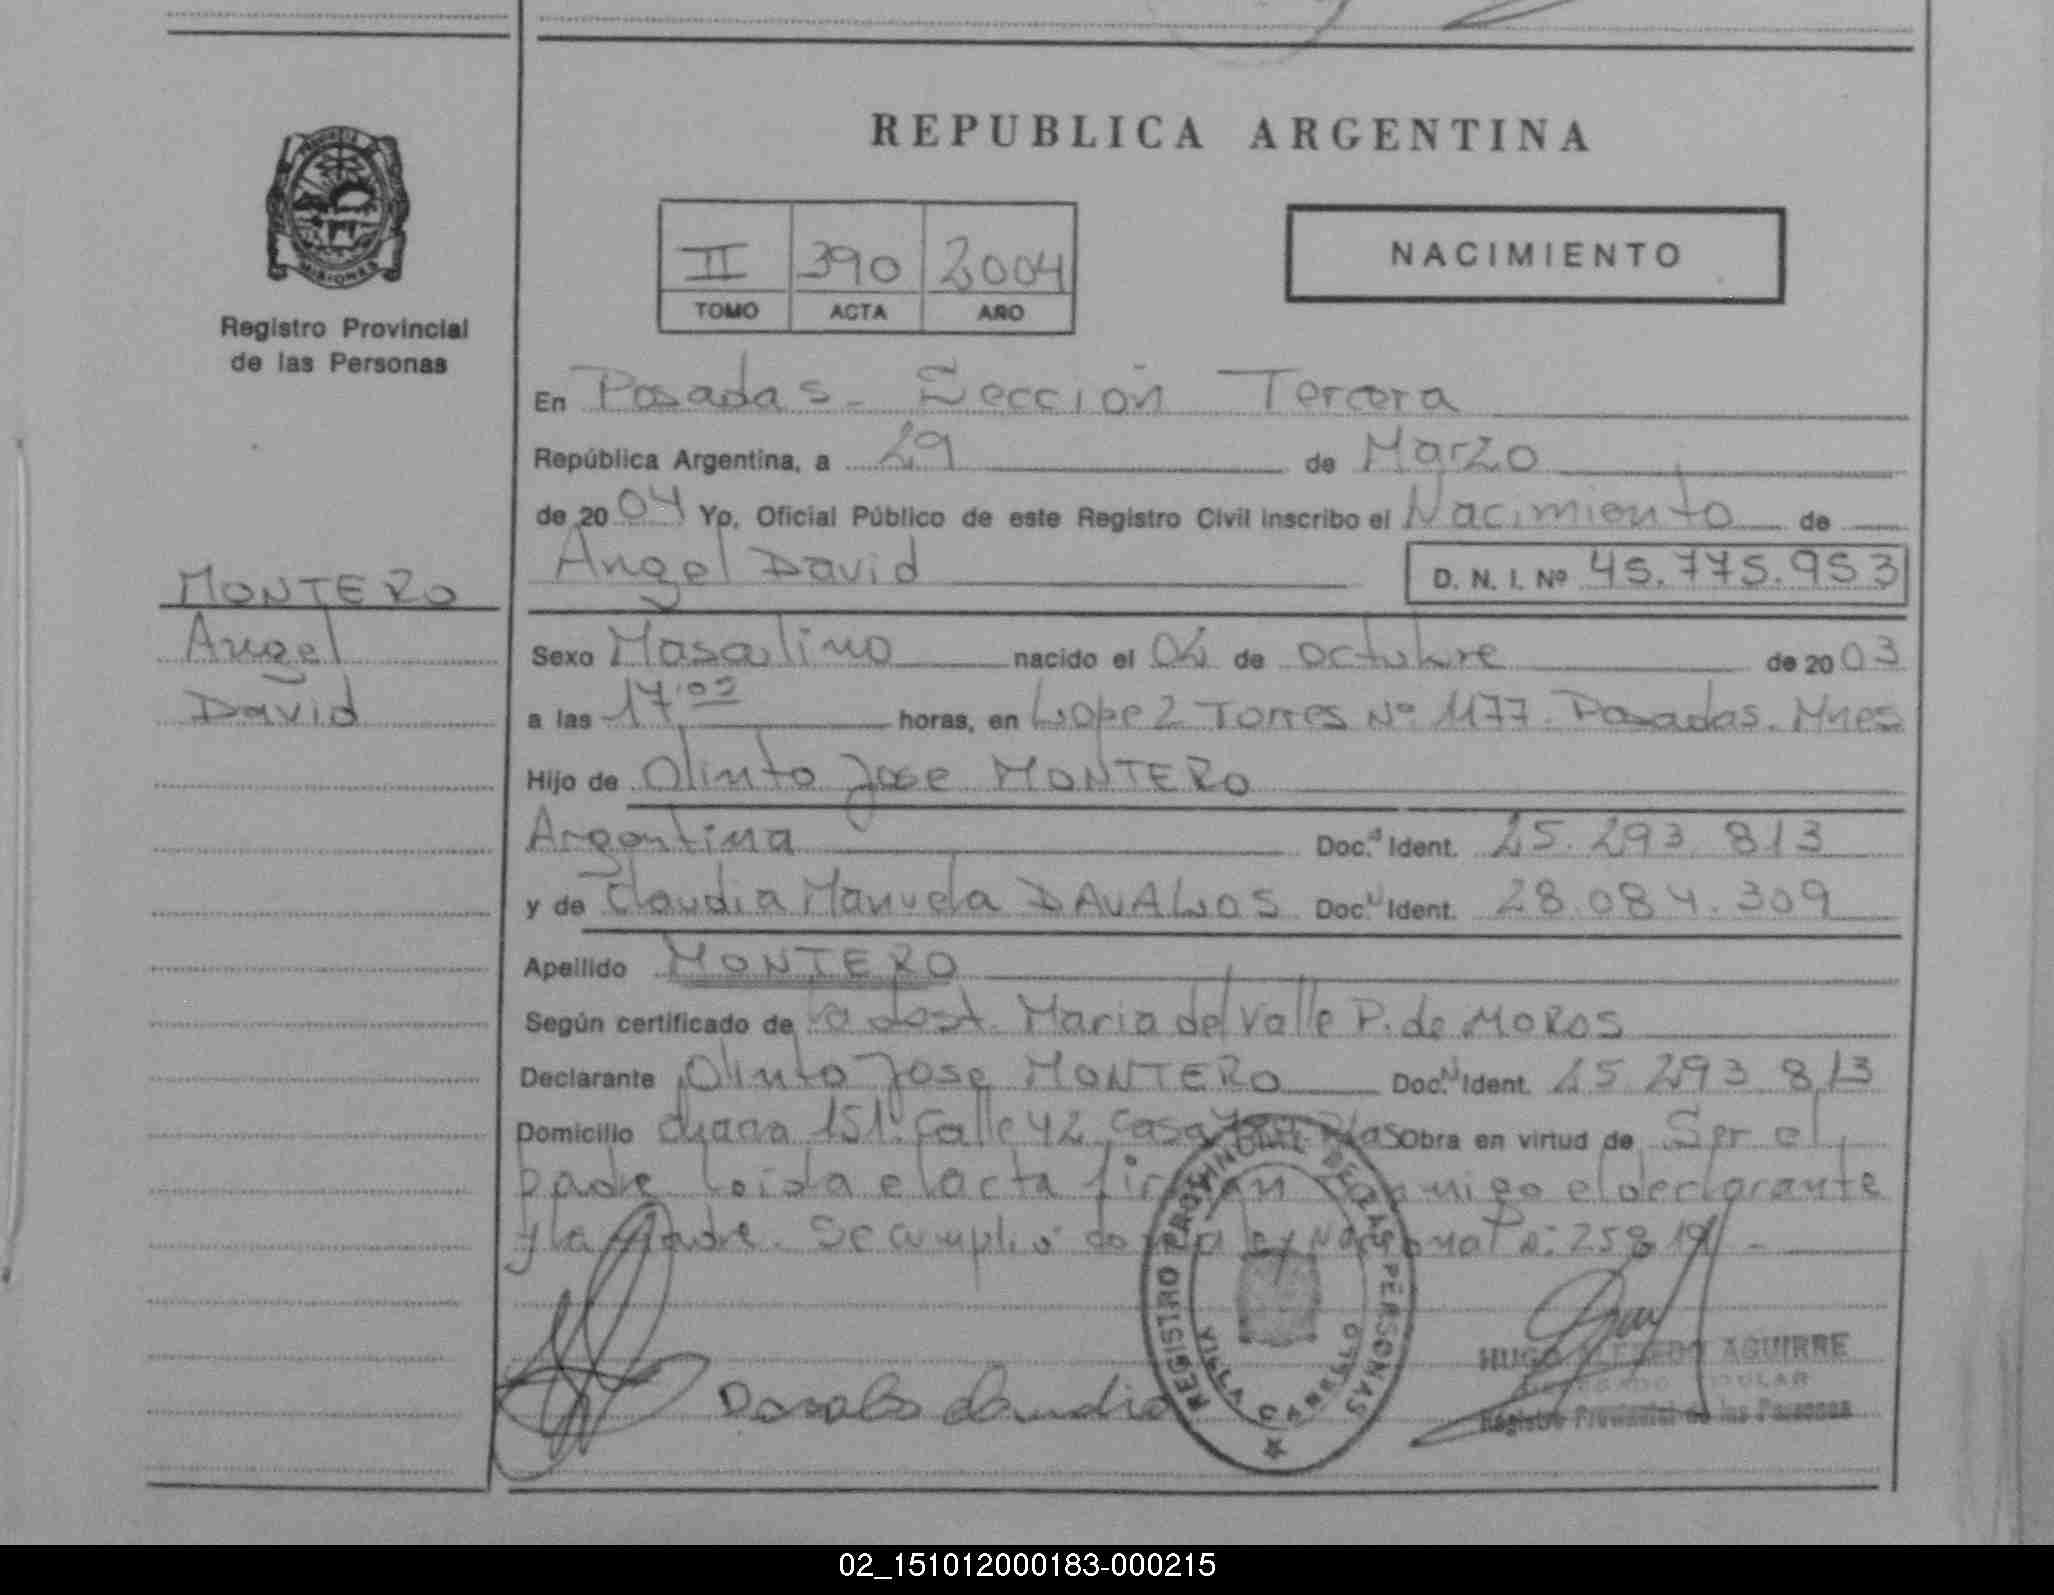 REPUBLICA ARGENTINA
NACIMIENTO
II 390 2004
TOMO ACTA AÑO
PROVINCIA
MISIONES
Registro Provincial
de las Personas
MONTERO
Angel
David
En Posadas - Sección Tercera
República Argentina, a 29 de Marzo
de 2004 Yo, Oficial Público de este Registro Civil inscribo el Nacimiento de
Angel David D. N. I. Nº 45.775.953
Sexo Masculino nacido el 04 de octubre de 2003
a las 17,02 horas, en Lopez Torres Nº 1177. Posadas. Mnes
Hijo de Olinto Jose MONTERO
Argentina Doc. Ident. 25.293.813
y de Claudia Manuela DAVALOS Doc. Ident. 28.084.309
Apellido MONTERO
Según certificado de la obst. Maria del Valle P. de MOROS
Declarante Olinto Jose MONTERO Doc. Ident. 25 293 813
Domicilio chacra 151 Calle 42 Casa obra en virtud de Ser el
padre Leida el acta firman conmigo el declarante
y la Madre. Se cumplió con la ley Nacional Nº: 25819 -
Davalos Claudia
REGISTRO PROVINCIAL DE LAS PERSONAS
VILLA CABELLO
HUGO ALFREDO AGUIRRE
DELEGADO TITULAR
Registro Provincial de las Personas
02_151012000183-000215